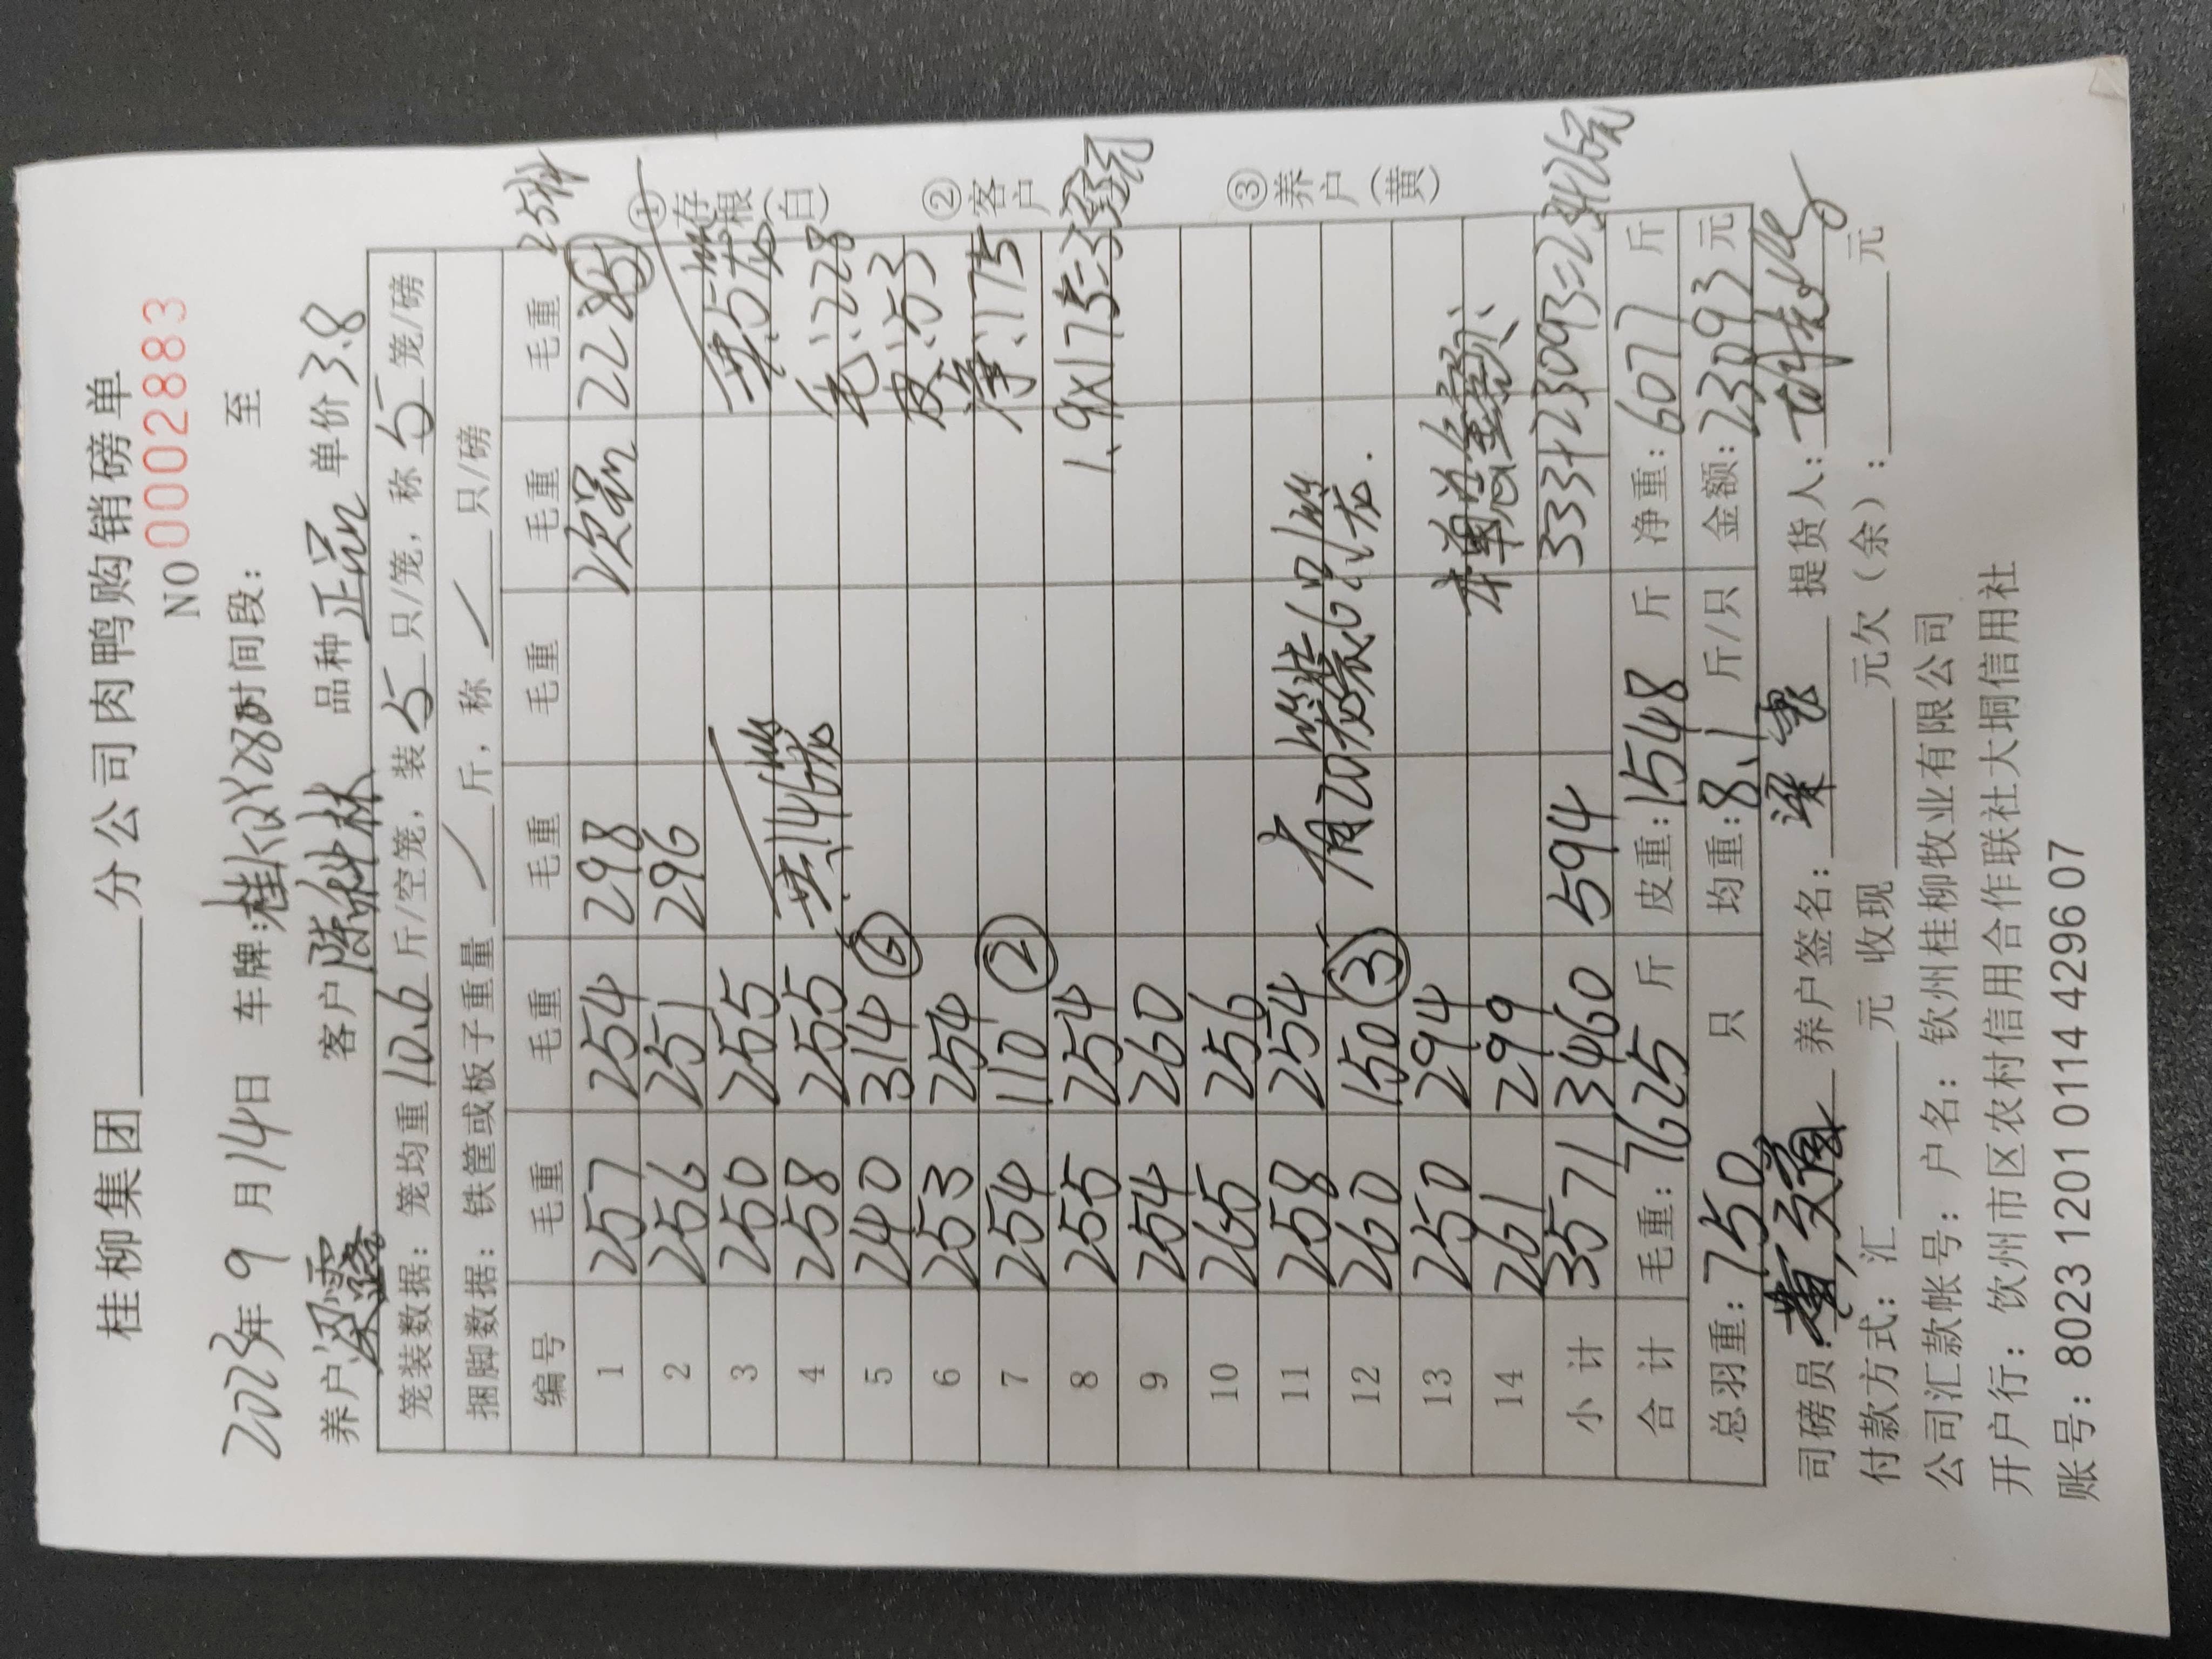 桂柳集团______分公司肉鸭购销磅单
NO 0002883
2023年9月14日 车牌:桂 时间段: 至
养户 客户 陈 林 品种 正品 单价 3.8
笼装数据: 笼均重 10.6 斤/空笼, 装 5 只/笼, 称 5 笼/磅
捆脚数据: 铁筐或板子重量 / 斤, 称 / 只/磅
编号 毛重 毛重 毛重 毛重 毛重 毛重
25只
1 257 254 298 次品 228 ⑤
2 256 251 296
3 250 255 共:5笼
4 258 255 共:146笼 毛:228
5 240 314 ⑥ 皮:53
6 253 254 净:175
7 254 110 ②
8 255 254 1.9x175=333元
9 254 260
10 265 256
11 258 254 笼装6只/笼
12 260 150 ③ 有20笼装6只/笼.
13 250 294 本单总金额:
14 261 299
小计 3571 3460 594 333+23093=23426元
合计 毛重: 7625 斤 皮重: 1548 斤 净重: 6077 斤
总羽重: 750 只 均重: 8.1 斤/只 金额: 23093元
①存根(白)
②客户
③养户(黄)
司磅员: 黄 养户签名: 梁 提货人:
付款方式: 汇______元 收现______元欠(余):______元
公司汇款帐号: 户名: 钦州桂柳牧业有限公司
开户行: 钦州市区农村信用合作联社大垌信用社
账号: 8023 1201 0114 4296 07